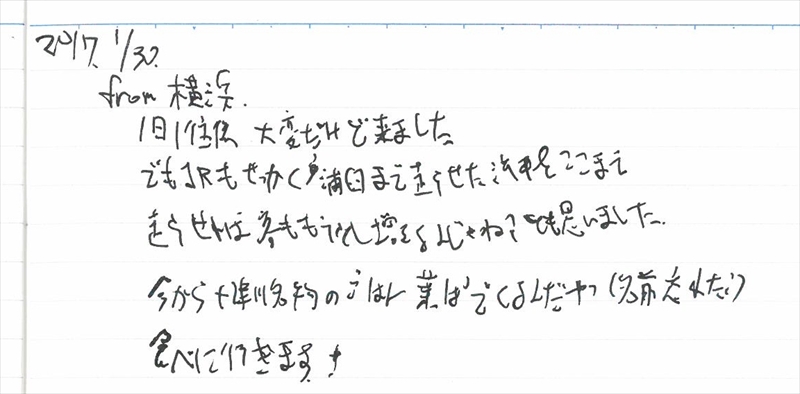 2017. 1/30.
from 横浜.
1日1往復 大変だけど来ました
でもJRもせっかく浦臼まで走らせた汽車をここまで
走らせれば客ももう少し増えるんじゃね?とも思いました.
今から十津川名物の ごはん 葉っぱでくるんだやつ(名前忘れた)
食べに行きます!